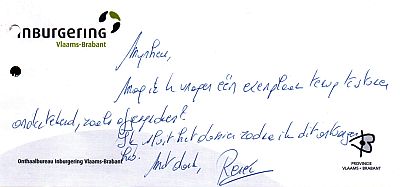 inburgering
Vlaams-Brabant
Mijnheer,
Mag ik u vragen één exemplaar terug te sturen
ondertekend, zoals afgesproken?
Ik sluit het dossier zodra ik dit ontvangen
heb.
Met dank, Renée
Onthaalbureau Inburgering Vlaams-Brabant
PROVINCIE
VLAAMS-BRABANT